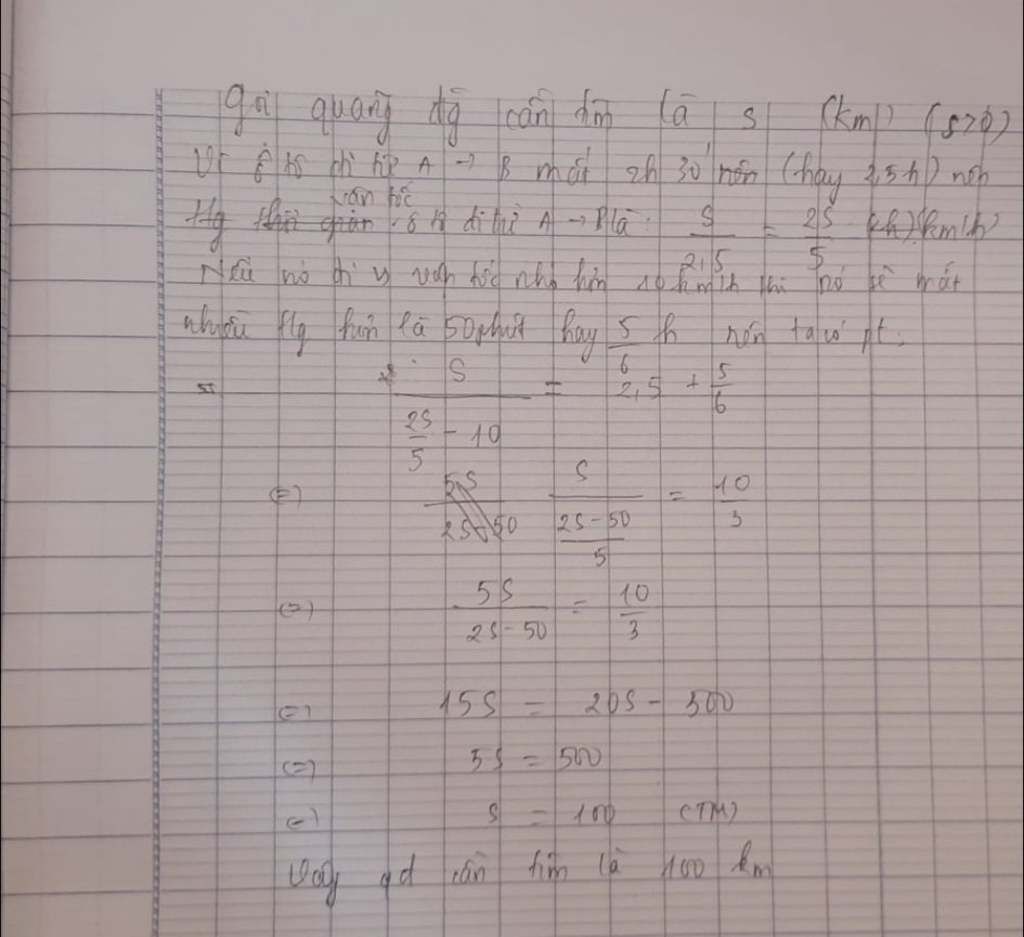 Gọi quãng đg cần tìm là s (km) (s>0)
Vì ô tô đi từ A → B mất 2h 30' nên (hay 2,5h) nên
vận tốc
ttg thời gian ô tô đi từ A → B là: S/2,5 = 2S/5 (h) (km/h)
Nếu nó đi vs vận tốc nhỏ hơn 10 km/h thì nó sẽ mất
nhiều tg hơn là 50 phút hay 5/6 h nên ta có pt:
S/(2S/5 - 10) = 2,5 + 5/6
(=) 5S/(2S-50) S/((2S-50)/5) = 10/3
(=) 5S/(2S-50) = 10/3
(=) 15S = 20S - 500
(=) 5S = 500
(=) S = 100 (TM)
Vậy qđ cần tìm là 100 km